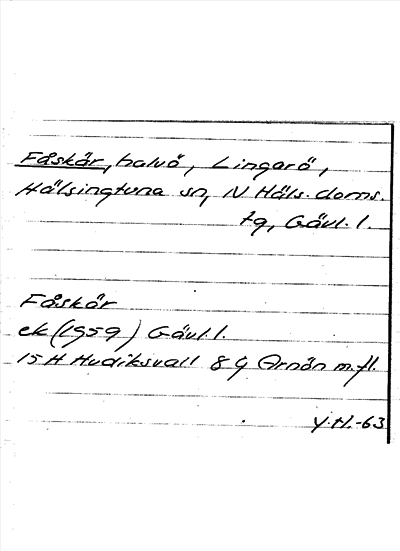 Fåskär, halvö, Lingarö,
Hälsingtuna sn, N Häls. doms.
tg, Gävl. l.
Fåskär
ek (1959) Gävl. l.
15 H Hudiksvall 8 g Arnön m.fl.
Y.H.-63